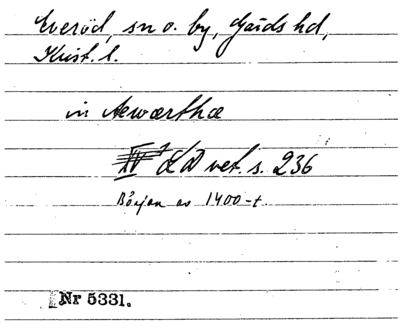 Everöd, sn o. by, Gärds hd,
Krist. l.
in Aewærthæ
LD vet. s. 236
Början av 1400-t.
Nr 5331.